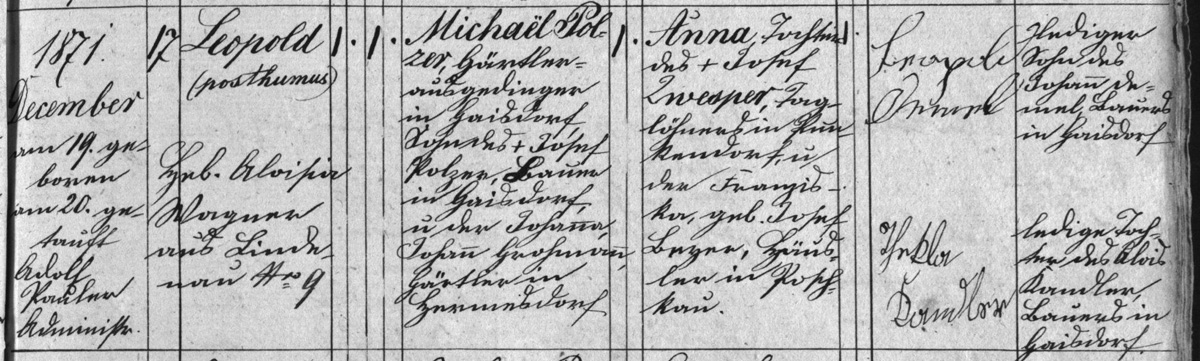 1871.
December
am 19. ge-
boren
am 20. ge-
tauft
Adolf
Pauler
Administr.
17
Leopold
(posthumus)
Heb. Aloisia
Wagner
aus Linde-
nau Nro 9
1. 1.
Michaël Pol-
zer, Gärtler-
ausgedinger
in Gaisdorf,
Sohn des + Josef
Polzer, Bauer
in Gaisdorf,
u der Johanna,
Johann Grohmann,
Gärtler in
Hermesdorf
1.
Anna, Tochter
des + Josef
Zwesper, Tag-
löhners in Pun
kendorf, u
der Franzis-
ka, geb. Josef
Beyer, Häus-
ler in Posch-
kau.
1.
Leopold
Demel
Thekla
Kandler
lediger
Sohn des
Johann De-
mel, Bauers
in Gaisdorf
ledige Toch-
ter des Alois
Kandler,
Bauers in
Gaisdorf